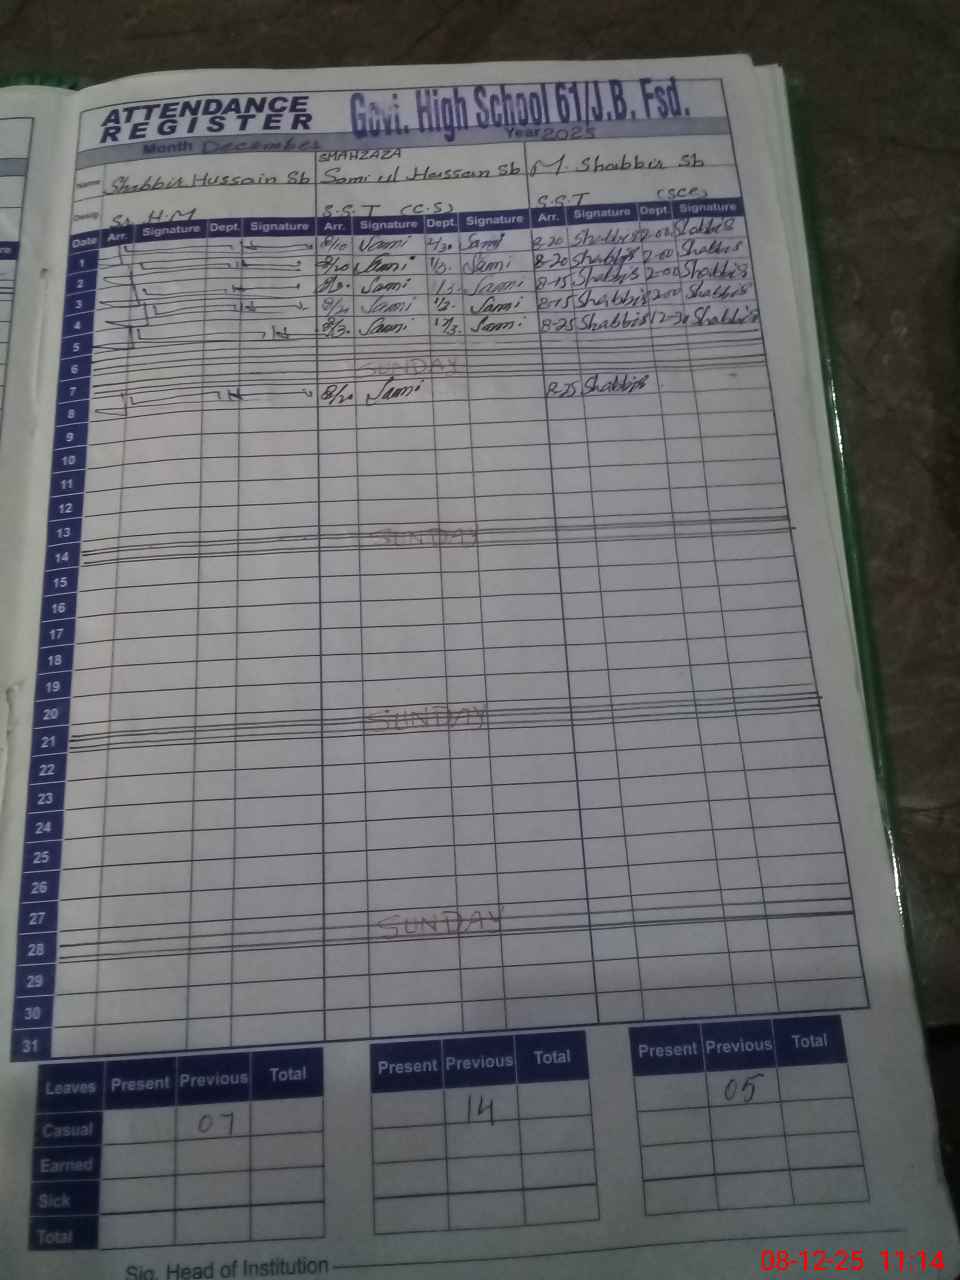 ATTENDANCE REGISTER
Govt. High School 61/J.B. Fsd.
Month December Year 2025
SHAHZAZA
Name Shabbir Hussain Sb Sami ul Hassan Sb M. Shabbir Sb
Desig. Sr. H.M S.S.T (C.S) S.S.T (SCE)
Date Arr. Signature Dept. Signature Arr. Signature Dept. Signature Arr. Signature Dept. Signature
1 8/10 Sami Sami 8-20 Shabbir 2-00 Shabbir
2 8/20 Sami Sami 8-20 Shabbir 2-00 Shabbir
3 Sami Sami 8-15 Shabbir 2-00 Shabbir
4 Sami Sami 8-15 Shabbir 2-00 Shabbir
5 Sami Sami 8-25 Shabbir 12-30 Shabbir
6
7 SUNDAY
8 8/20 Sami 8-25 Shabbir
9
10
11
12
13
14 SUNDAY
15
16
17
18
19
20
21 SUNDAY
22
23
24
25
26
27
28 SUNDAY
29
30
31
Leaves Present Previous Total Present Previous Total Present Previous Total
Casual 07 14 05
Earned
Sick
Total
Sig. Head of Institution
08-12-25 11:14